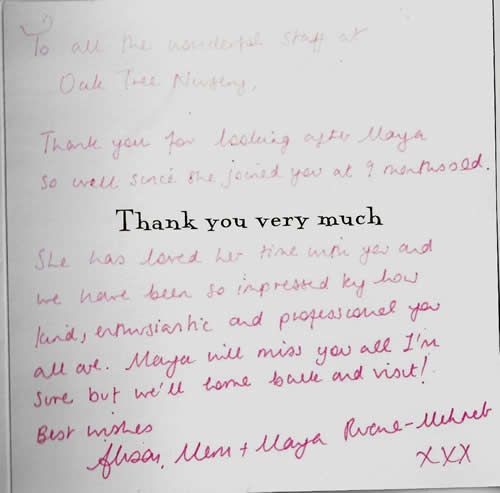 To all the wonderful staff at
Oak Tree Nursery,
Thank you for looking after Maya
so well since she joined you at 9 months old.
Thank you very much
She has loved her time with you and
we have been so impressed by how
kind, enthusiastic and professional you
all are. Maya will miss you all I'm
sure but we'll come back and visit!
Best wishes
+ Maya
xxx